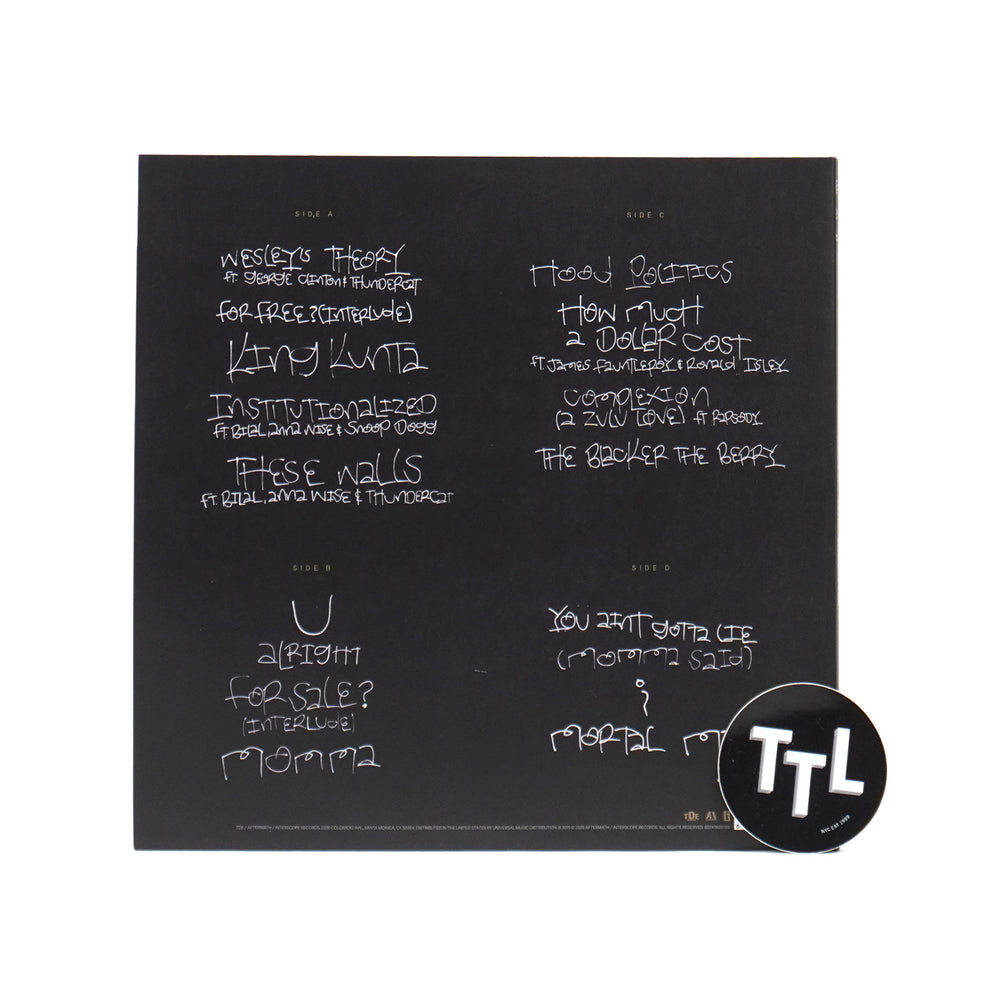 SIDE A
WESLEY'S THEORY
FT. GEORGE CLINTON & THUNDERCAT
FOR FREE? (INTERLUDE)
KING KUNTA
INSTITUTIONALIZED
FT BILAL, ANNA WISE & SNOOP DOGG
THESE WALLS
FT. BILAL, ANNA WISE & THUNDERCAT
SIDE B
U
ALRIGHT
FOR SALE?
(INTERLUDE)
MOMMA
SIDE C
HOOD POLITICS
HOW MUCH
A DOLLAR COST
FT. JAMES FAUNTLEROY & RONALD ISLEY
COMPLEXION
(A ZULU LOVE) FT RAPSODY
THE BLACKER THE BERRY
SIDE D
YOU AINT GOTTA LIE
(MOMMA SAID)
i
MORTAL
TDE
TDE / AFTERMATH / INTERSCOPE RECORDS, 2220 COLORADO AVE., SANTA MONICA, CA 90404. DISTRIBUTED IN THE UNITED STATES BY UNIVERSAL MUSIC DISTRIBUTION. AFTERMATH / INTERSCOPE RECORDS. ALL RIGHTS RESERVED.
TTL
NYC EST 1999